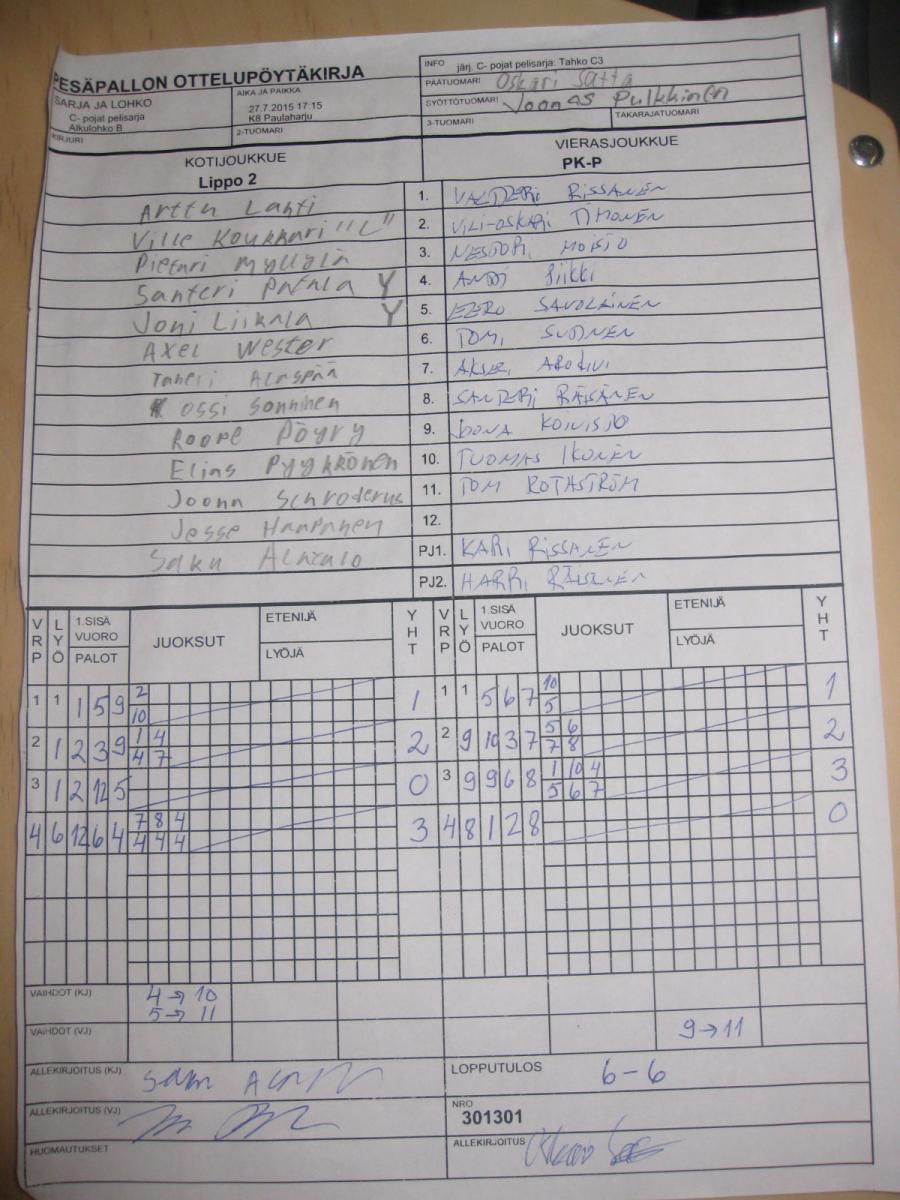 PESÄPALLON OTTELUPÖYTÄKIRJA
SARJA JA LOHKO
C- pojat pelisarja
Alkulohko B
KIRJURI
AIKA JA PAIKKA
27.7.2015 17:15
K8 Paulaharju
2-TUOMARI
INFO järj. C- pojat pelisarja: Tahko C3
PÄÄTUOMARI Oskari Satta
SYÖTTÖTUOMARI Joonas Pulkkinen
3-TUOMARI TAKARAJATUOMARI
KOTIJOUKKUE VIERASJOUKKUE
Lippo 2 PK-P
Arttu Lahti 1. VALTTERI RISSANEN
Ville Koukkari "L" 2. VILI-OSKARI TIMONEN
Pietari Myllylä 3. NESTORI MOISIO
Santeri Patala Y 4. ANTTI Piikki
Joni Liikala Y 5. EERO SAVOLAINEN
Axel Wester 6. TOMI SUONEN
Taneri Alaspää 7. AKSELI
Ossi Sonninen 8. SANTERI RÄISÄNEN
Roope Pöyry 9. JOONA KOIVISTO
Elias Pyykkönen 10. TUOMAS IKONEN
Joona Schroderus 11. TOM ROTHSTRÖM
Jesse Haapanen 12.
Saku Alatalo PJ1. KARI RISSANEN
PJ2. HARRI RÄISÄNEN
VRP LYÖ 1.SISÄ VUORO PALOT JUOKSUT ETENIJÄ LYÖJÄ YHT VRP LYÖ 1.SISÄ VUORO PALOT JUOKSUT ETENIJÄ LYÖJÄ YHT
1 1 1 5 9 2 1 1 1 5 6 7 10 1
10 5
2 1 2 3 9 1 4 2 2 9 10 3 7 5 6 2
4 7 7 8
3 1 2 12 5 0 3 9 9 6 8 1 10 4 3
5 6 7
4 6 12 6 4 7 8 4 3 4 8 1 2 8 0
4 4 4
VAIHDOT (KJ) 4 → 10
5 → 11
VAIHDOT (VJ) 9 → 11
ALLEKIRJOITUS (KJ) LOPPUTULOS 6-6
ALLEKIRJOITUS (VJ) NRO
301301
HUOMAUTUKSET ALLEKIRJOITUS